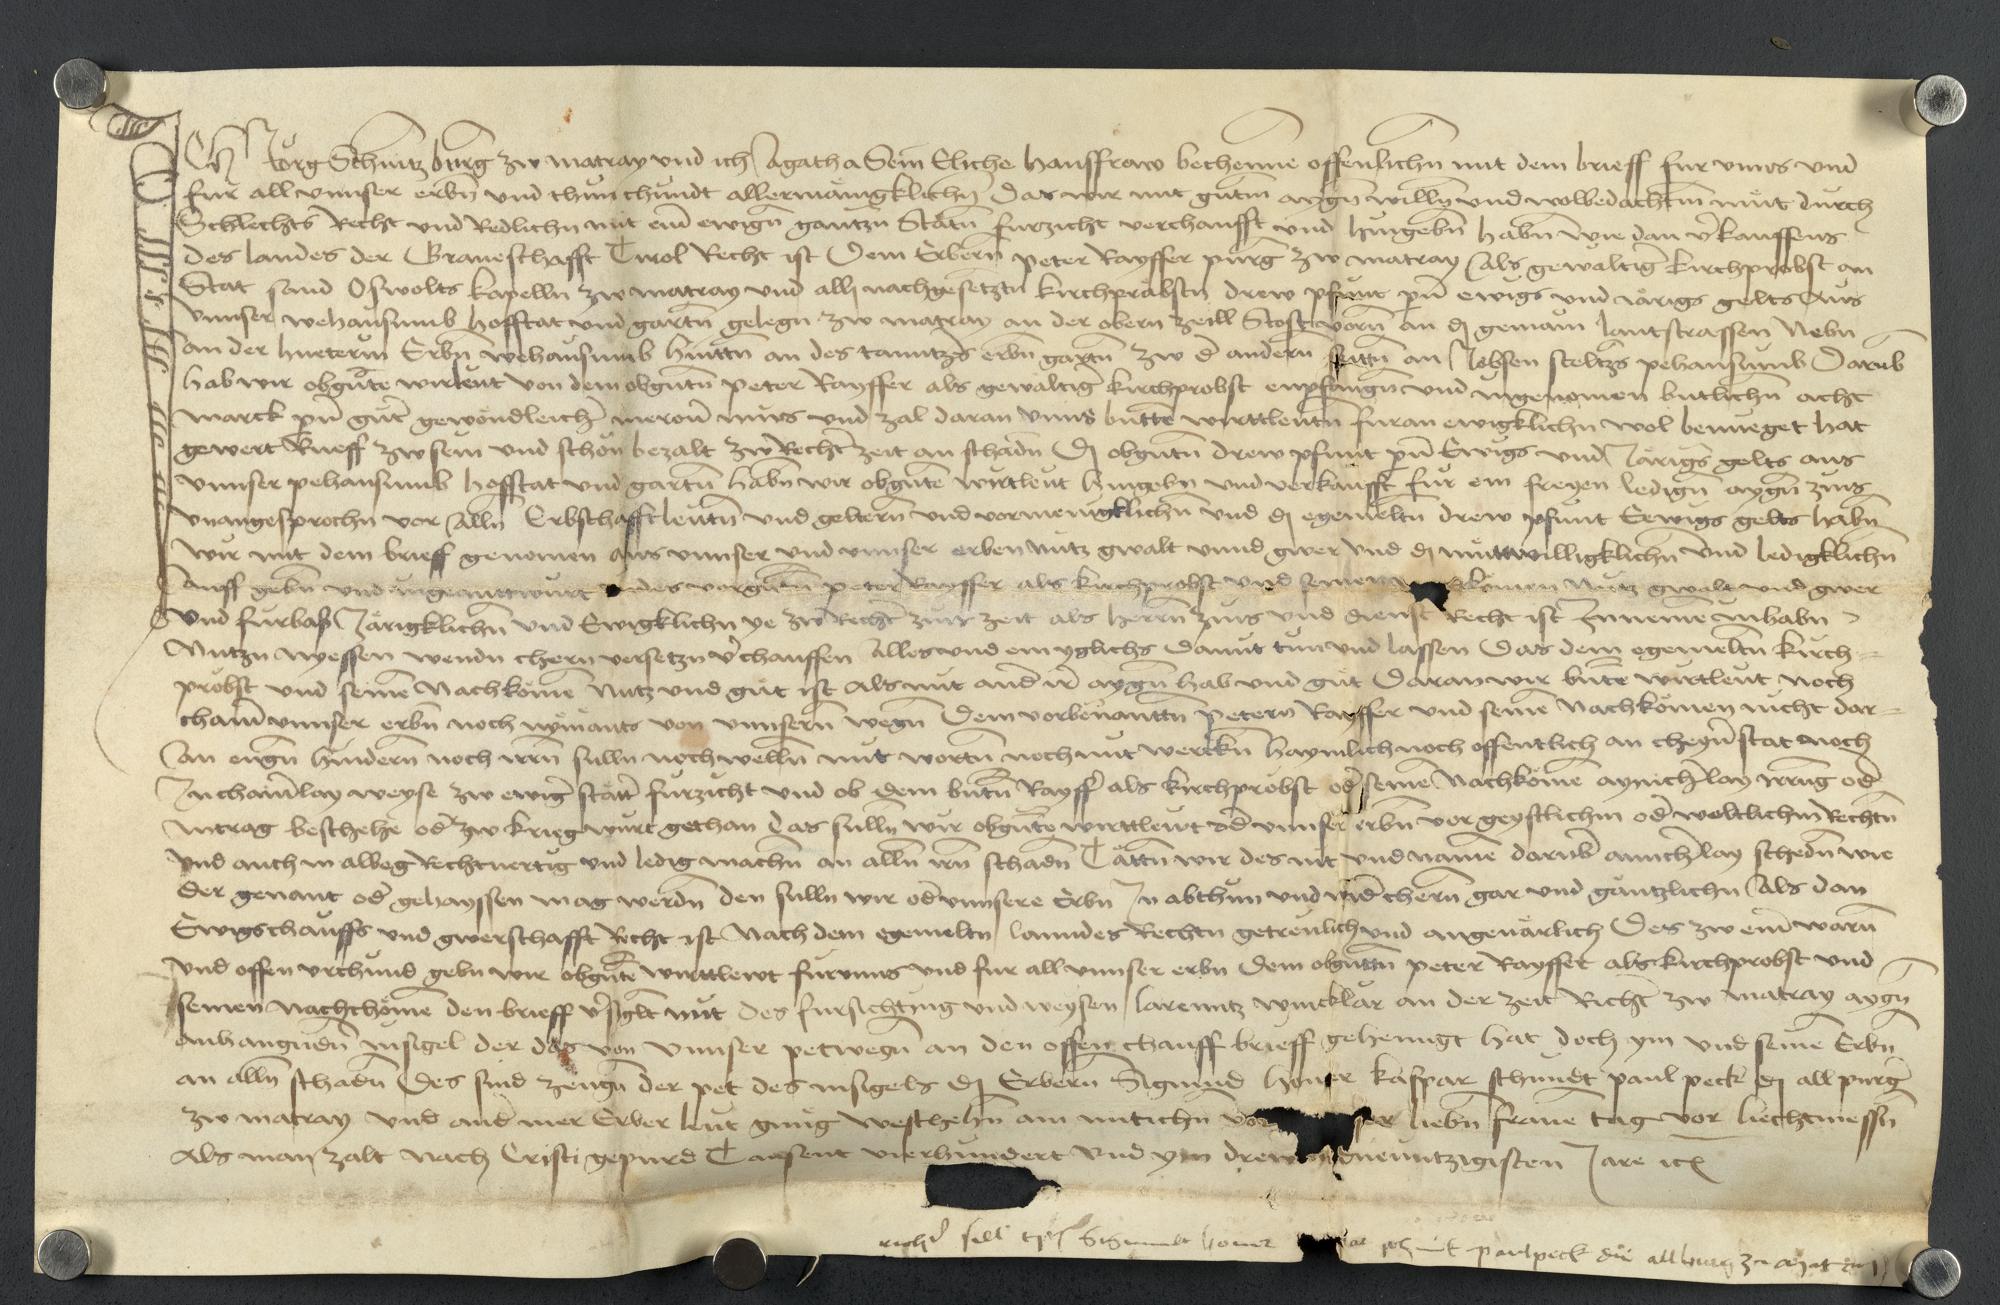 Ich Jorg Schmitz burg zw matray und ich Agatha Sein Eliche hausfraw bechenne offenlichn mit dem brieff fur unns und
fur all unnser erbn und thun chundt allermänigklichn Das wir mit gutm aygn willn und wolbedachtm müt durch
Schlechts Recht und Redlichn mit eim ewign gantzn Statn furzicht verchaufft und hingebn habn wie dan verkauffens
des landes der Graueschafft Tirol Recht ist Dem Erbern peter Rayffer purg zw matray Als gewaltig kirchprobst an
Stat sand Oswolts kapelln zw matray und alln nachgesetztn kirchpräbstn drew pfunt pn ewigs und järigs gelts Aus
unnser wehausunb hofftat und gartn gelegn zw matray an der obern zeill Stost vorn an dj gemain lantstrassen Nebn
an der hueterin Erbn wehausunb hinttn an des tanntzls erbn gartn zw d andern seittn an Jobsen steltzs pehausunb Darub
hab wir obgnte wirleut von dem obgntn peter Rayffer als gewaltig kirchprobst enpfangn und ingenomen bentlichn acht
marck pn gutr gewondleicher meroner munss und zal daran unns bnte wirttleutn furan ewigklichn wol benueget hat
gewert Rueff zw sein und schon bezalt zw Rechtr zeit an schadn Dj obgntn drew pfunt pn Ewigs und Järigs gelts aus
unnser pehausunb hofftat und gartn habn wir obgnte wirtleut hingebn und verkaufft fur ein freyen ledign aygn zins
unangesprochn vor Alln Erbschafftleutn und geltern und vormenigklichn und dj egemeltn drew pfunt Eewigs gelts habn
wir mit dem brieff genomen aus unnser und unnser erben nutz gwalt unnd gwer und dj muttwilligklichn und ledigklichn
Auff gebn und ingeanttwurt des vorgntn peter Rayffer als kirchprobst und seinen nachkomen Nutz gwalt und gwer
und furbas Järigklichn und Ewigklichn ye zw Rechtr zinß zeit als herrn zins und dienst Recht ist Innemen inhabn
Nutzn nyessen wendn chern versetzn verchauffen Alles und ein yglichs damit tun und lassen Das dem egemeltn kirch=
probst und seinen Nachkömen Nutz und gut ist als mit andr ir aygn hab und gut Daran wir bnte wirtleut noch
chain unnser erbn noch nymants von unnsern wegn Dem vorbenanttn petern Rayffer und seinen Nachkomen nicht dar=
an engn hindern noch irrn sulln noch welln mit wortn noch mit werckn haymlich noch offentlich an chayner stat noch
In chainerlay weyse zw ewigr stattr furzicht und ob dem bntn Rayffer als kirchprobst odr seinen Nachkömen aynicherlay irrung odr
intrag beschehe odr zw krieg wurt gethan das sulln wir obgnte wirttlewt odr unnser erbn vor geystlichm odr weltlichm Rechtn
und auch in albeg Rechtuertig und ledig machn an alln irn schadn Tättn wir des nit und namen darubr ainicherlay schedn wie
der genant odr gehayssen mag werdn den sulln wir odr unnsere Erbn In abthun und widrchern gar und gäntzlichn Als dan
Ewigs chauffs und gwerschafft Recht ist Nach dem egemeltn lanndes Rechtn getreulich und angeuärlich Des zw eim warn
und offen urchund gebn wir obgnte wirttlewt fur unns und fur all unnser erbn Dem obgnttn peter Rayffer als kirchprobst und
seinen Nachchömen den brieff versiglt mit des fursichting und weysen larenntz wincklär an der zeit Richtr zw matray aygn
anhangundn insigel der das von unnser petwegn an den offen chauff brieff gehenngt hat doch ym und seinen Erbn
an alln schadn Des sind zeugn der pet des insigels dj Erbern Sigmund honer kaspar schmidt paul peck dj all purgr
zw matray und andr mer Erber leut gnug Westhehn am mitichn vor unnser liebn frauen tag vor liechtmessn
Als man zalt nach Cristi gepurd Tausent vierhundert und ym drewundneuntzigisten Jare etc
richtr sell tptes Sigmundt honer paulpeck die all burg zu matray